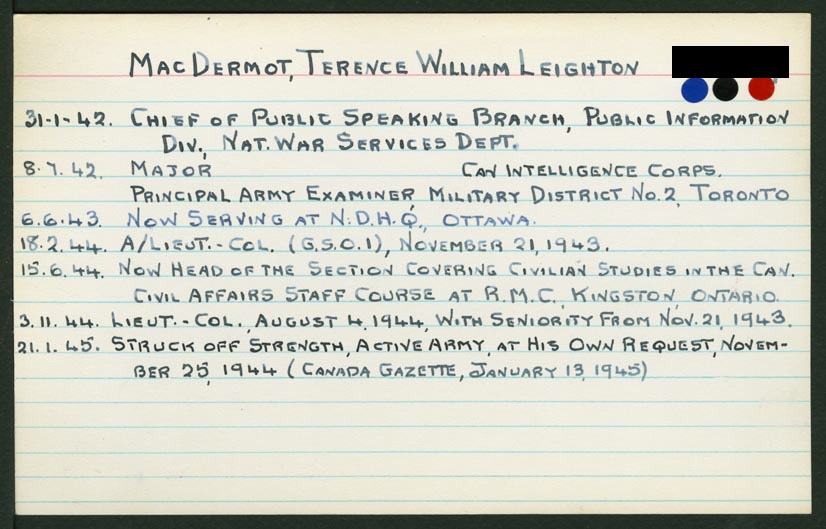 MacDermot, Terence William Leighton
31-1-42. Chief of Public Speaking Branch, Public Information
Div., Nat. War Services Dept.
8.7.42. Major Can Intelligence Corps.
Principal Army Examiner, Military District No. 2, Toronto
6.6.43. Now Serving at N.D.H.Q., Ottawa.
18.2.44. A/Lieut.-Col. (G.S.O.1), November 21, 1943.
15.6.44. Now Head of the Section Covering Civilian Studies in the Can.
Civil Affairs Staff Course at R.M.C., Kingston, Ontario.
3.11.44. Lieut.-Col., August 4, 1944, With Seniority From Nov. 21, 1943.
21.1.45. Struck off Strength, Active Army, at His Own Request, Novem-
ber 25, 1944 (Canada Gazette, January 13, 1945)